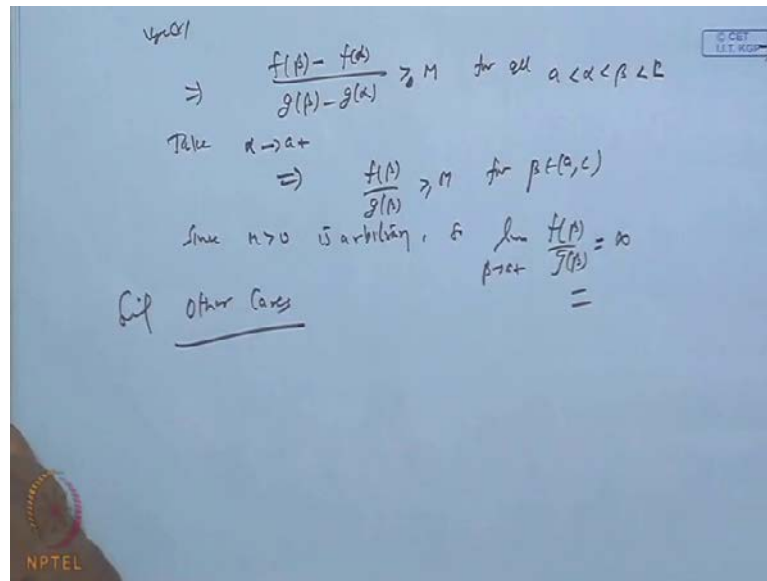 © CET
I.I.T. KGP
⇒ f(β) - f(α) / g(β) - g(α) ≥ M for all a < α < β < c
Take α → a+
⇒ f(β) / g(β) ≥ M for β ∈ (a, c)
Since M > 0 is arbitrary, so lim β→a+ f(β) / g(β) = ∞
Other Cases
NPTEL